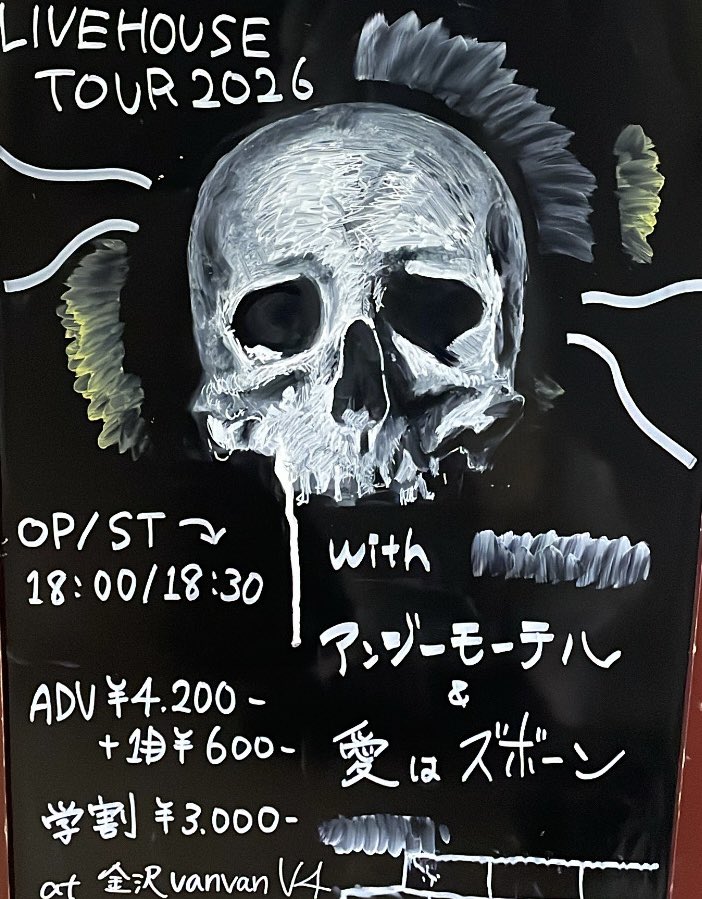 LIVEHOUSE
TOUR 2026
OP/ST
18:00/18:30
with
アンジーモーテル
&
愛はズボーン
ADV ¥4.200-
+1D ¥600-
学割 ¥3.000-
at 金沢vanvanV4